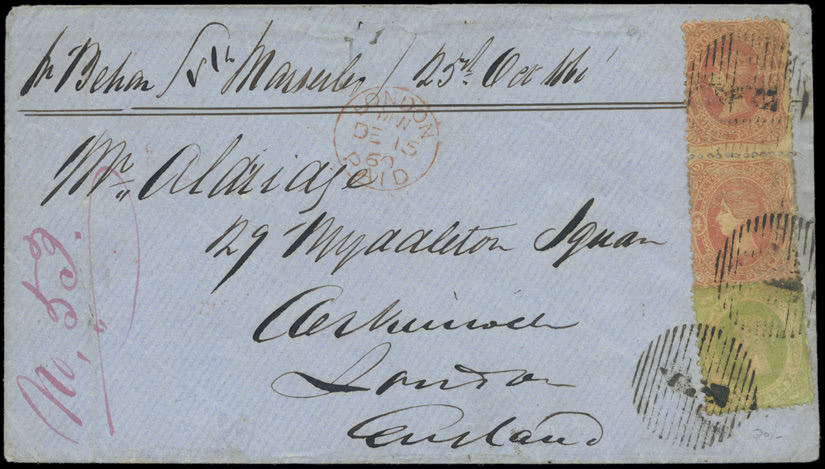 pr Behar / Via Marseilles / 25th Oct 1860
LONDON
MN
DE 15
60
PAID
Mr Aldridge
29 Myddelton Square
Clerkenwell
London
England
No, 59.
20/-